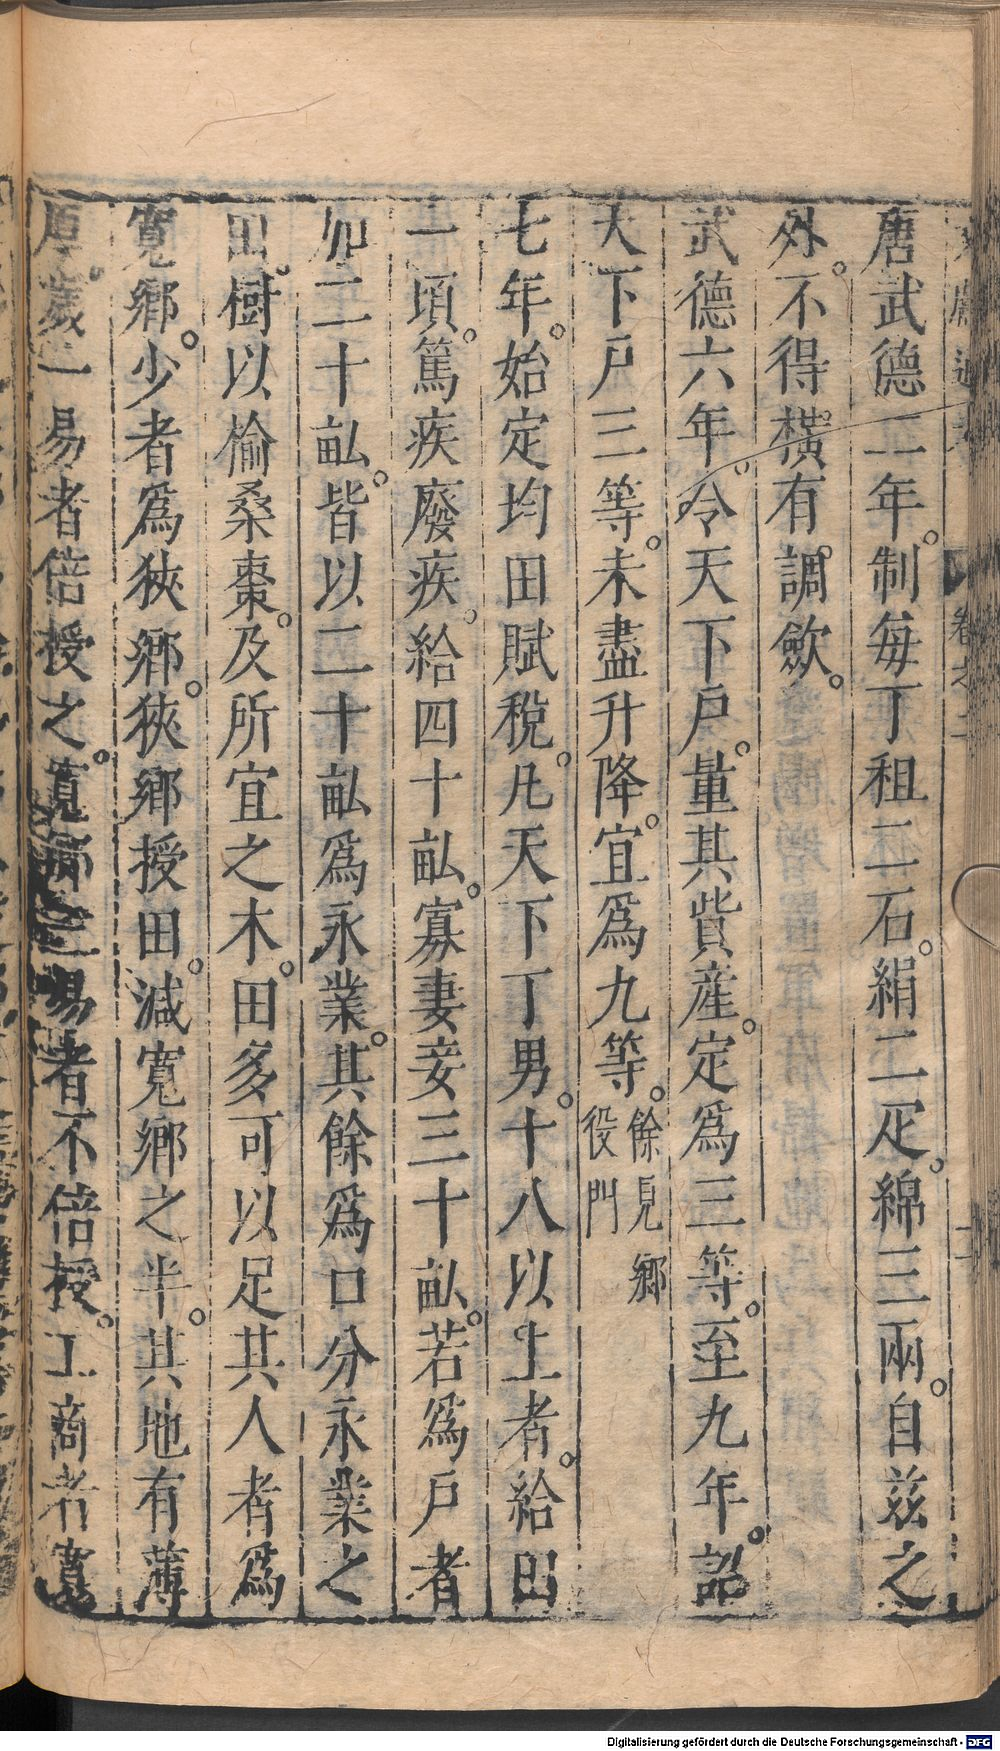 唐武德二年。制每丁租二石。絹二疋。綿三兩。自兹之
外。不得横有調斂。
武德六年。令天下戸。量其貲産。定為三等。至九年。詔
天下戸三等。未盡升降。宜為九等。餘見鄉
役門
七年。始定均田賦稅。凡天下丁男。十八以上者。給田
一頃。篤疾廢疾。給四十畝。寡妻妾三十畝。若為戸者
加二十畝。皆以二十畝為永業。其餘為口分永業之
田。樹以榆桑棗。及所宜之木。田多可以足其人者為
寬鄉。少者為狹鄉。狹鄉授田。減寬鄉之半。其地有薄
厚。歲一易者倍授之。寬鄉三易者不倍授。工商者寬
卷之二
二
Digitalisierung gefördert durch die Deutsche Forschungsgemeinschaft - DFG